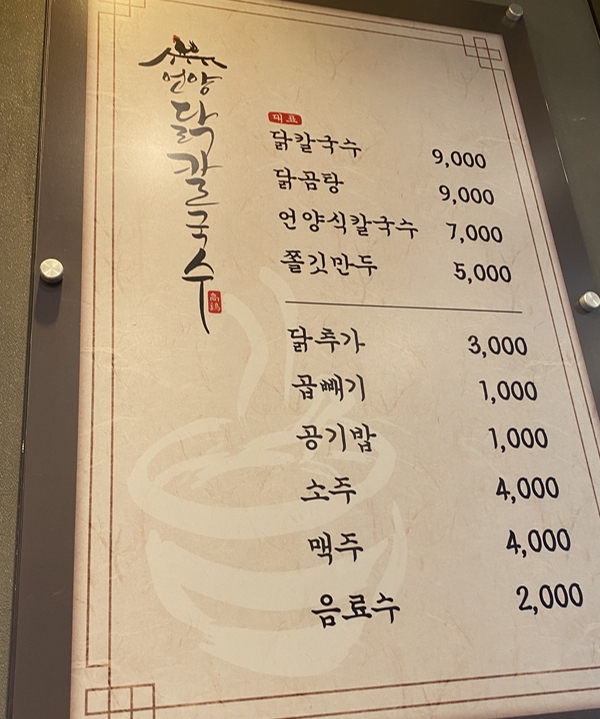 언양
닭칼국수
대표
닭칼국수 9,000
닭곰탕 9,000
언양식칼국수 7,000
쫄깃만두 5,000
닭추가 3,000
곱빼기 1,000
공기밥 1,000
소주 4,000
맥주 4,000
음료수 2,000